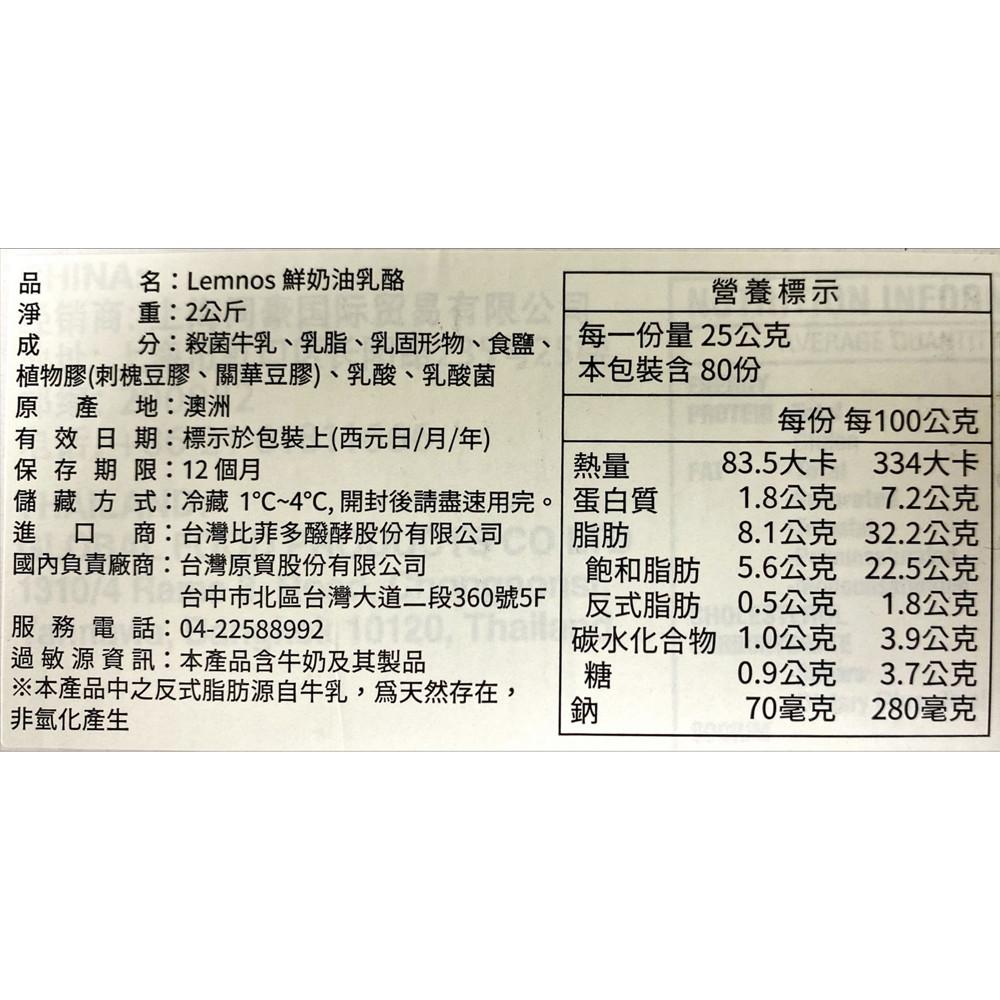 品名：Lemnos 鮮奶油乳酪
淨重：2公斤
成分：殺菌牛乳、乳脂、乳固形物、食鹽、
植物膠(刺槐豆膠、關華豆膠)、乳酸、乳酸菌
原產地：澳洲
有效日期：標示於包裝上(西元日/月/年)
保存期限：12個月
儲藏方式：冷藏 1°C~4°C, 開封後請盡速用完。
進口商：台灣比菲多醱酵股份有限公司
國內負責廠商：台灣原貿股份有限公司
台中市北區台灣大道二段360號5F
服務電話：04-22588992
過敏源資訊：本產品含牛奶及其製品
※本產品中之反式脂肪源自牛乳，爲天然存在，
非氫化產生
營養標示
每一份量 25公克
本包裝含 80份
每份 每100公克
熱量 83.5大卡 334大卡
蛋白質 1.8公克 7.2公克
脂肪 8.1公克 32.2公克
飽和脂肪 5.6公克 22.5公克
反式脂肪 0.5公克 1.8公克
碳水化合物 1.0公克 3.9公克
糖 0.9公克 3.7公克
鈉 70毫克 280毫克